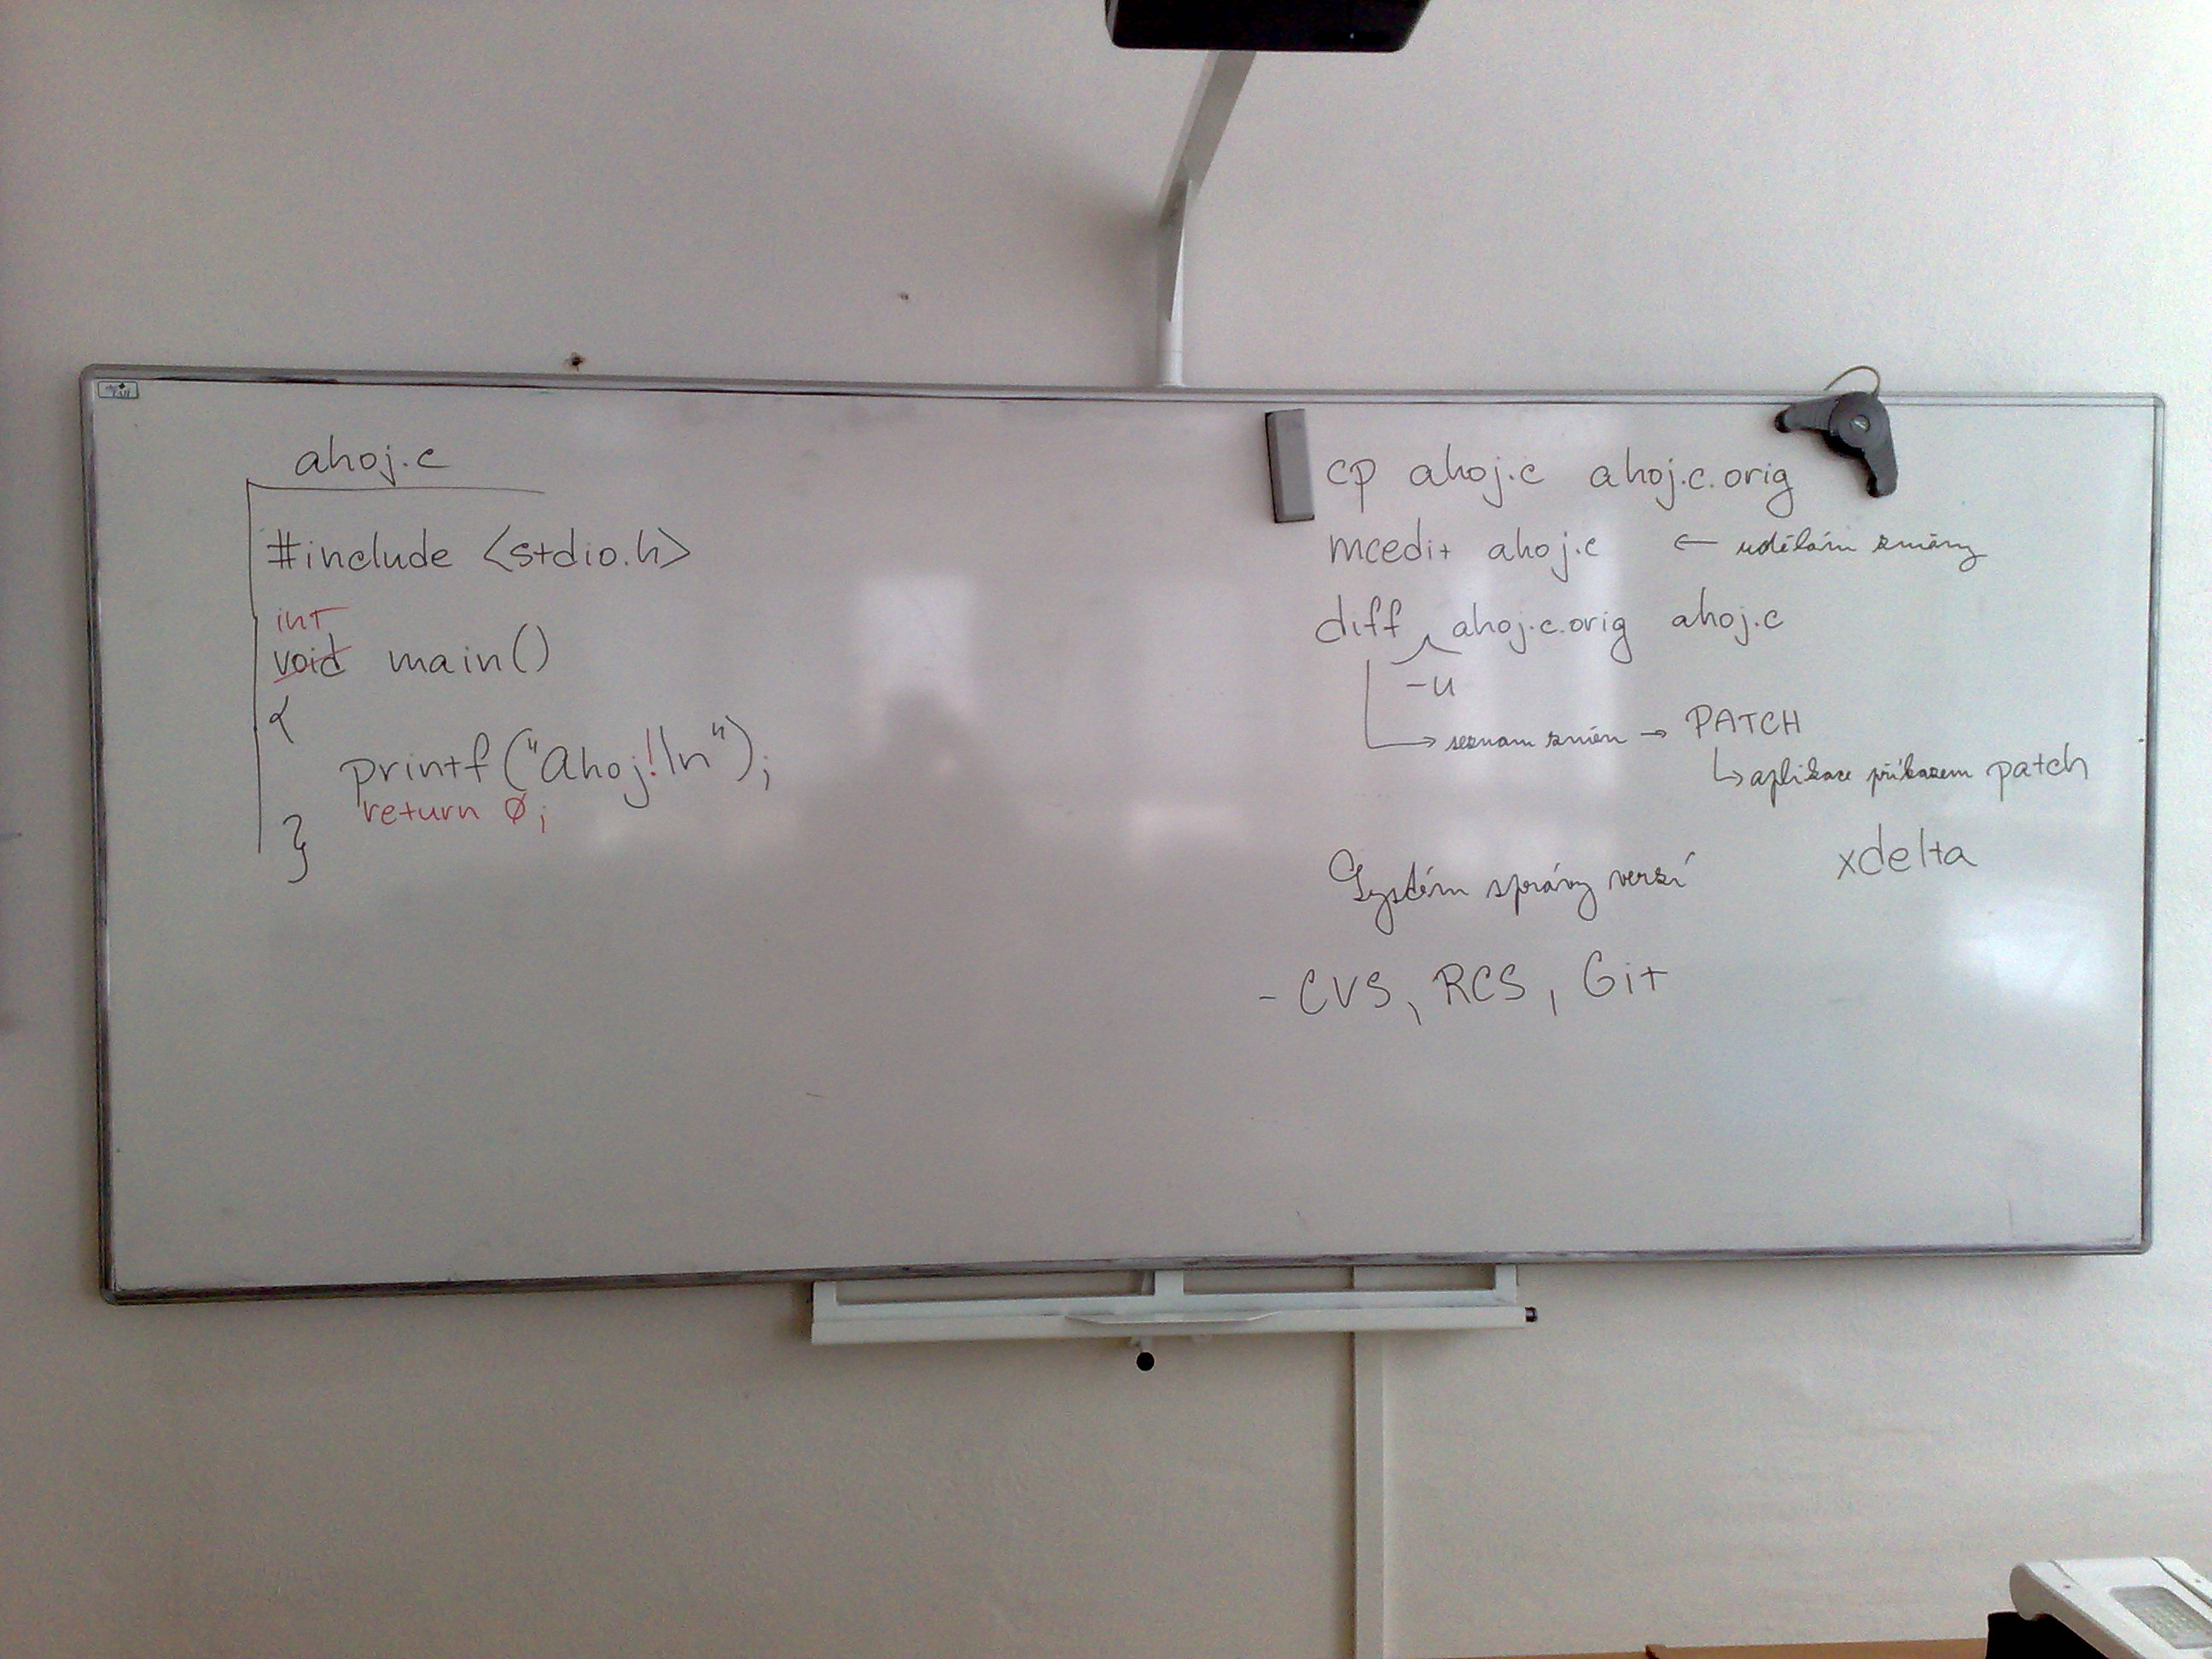 ahoj.c
#include <stdio.h>
int
void main()
{
printf("Ahoj!\n");
return 0;
}
cp ahoj.c ahoj.c.orig
mcedit ahoj.c ← udělám změny
diff ahoj.c.orig ahoj.c
-u
→ seznam změn → PATCH
↳ aplikace příkazem patch
Systém správy verzí
xdelta
- CVS, RCS, Git